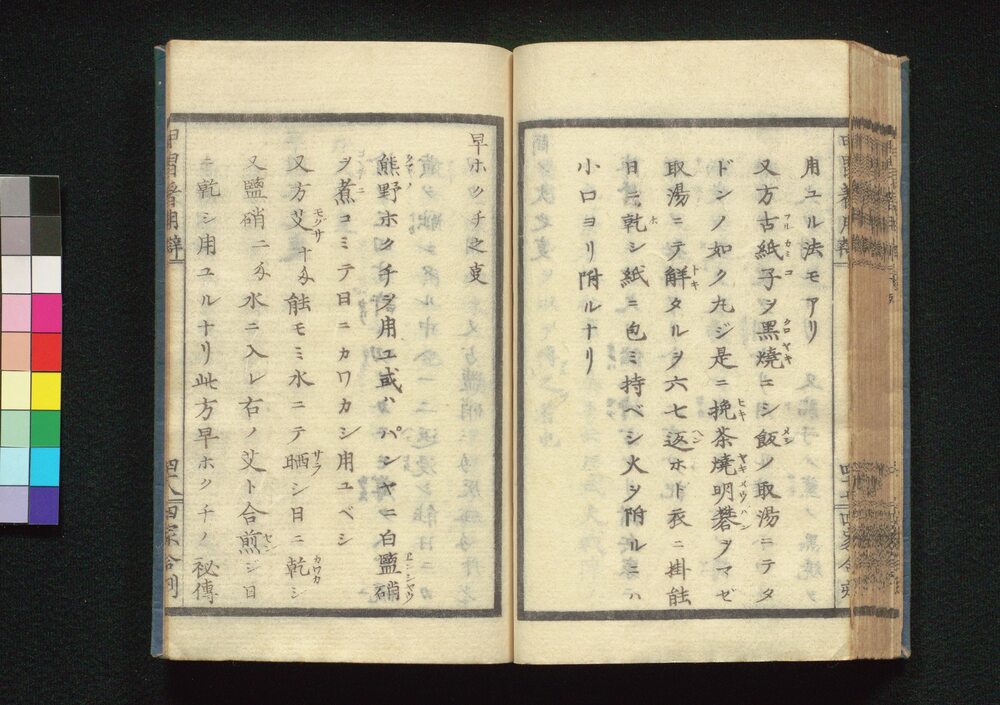 用ユル法モアリ
又方古紙子ヲ黒燒ニシ飯ノ取湯ニテタ
ドンノ如ク丸ジ是ニ挽茶燒明礬ヲマゼ
取湯ニテ解タルヲ六七返ホト衣ニ掛能
日ニ乾シ紙ニ包ミ持ベシ火ヲ附ルニハ
小口ヨリ附ルナリ
早ホクチ之叓
熊野ホクチヲ用ユ或ハパンヤニ白鹽硝
ヲ煮コミテ日ニカワカシ用ユベシ
又方艾十匁能モミ水ニテ晒シ日ニ乾シ
又鹽硝二匁水ニ入レ右ノ艾ト合煎ジ日
ニ乾シ用ユルナリ此方早ホクチノ秘傳
甲冑着用辯
四十八